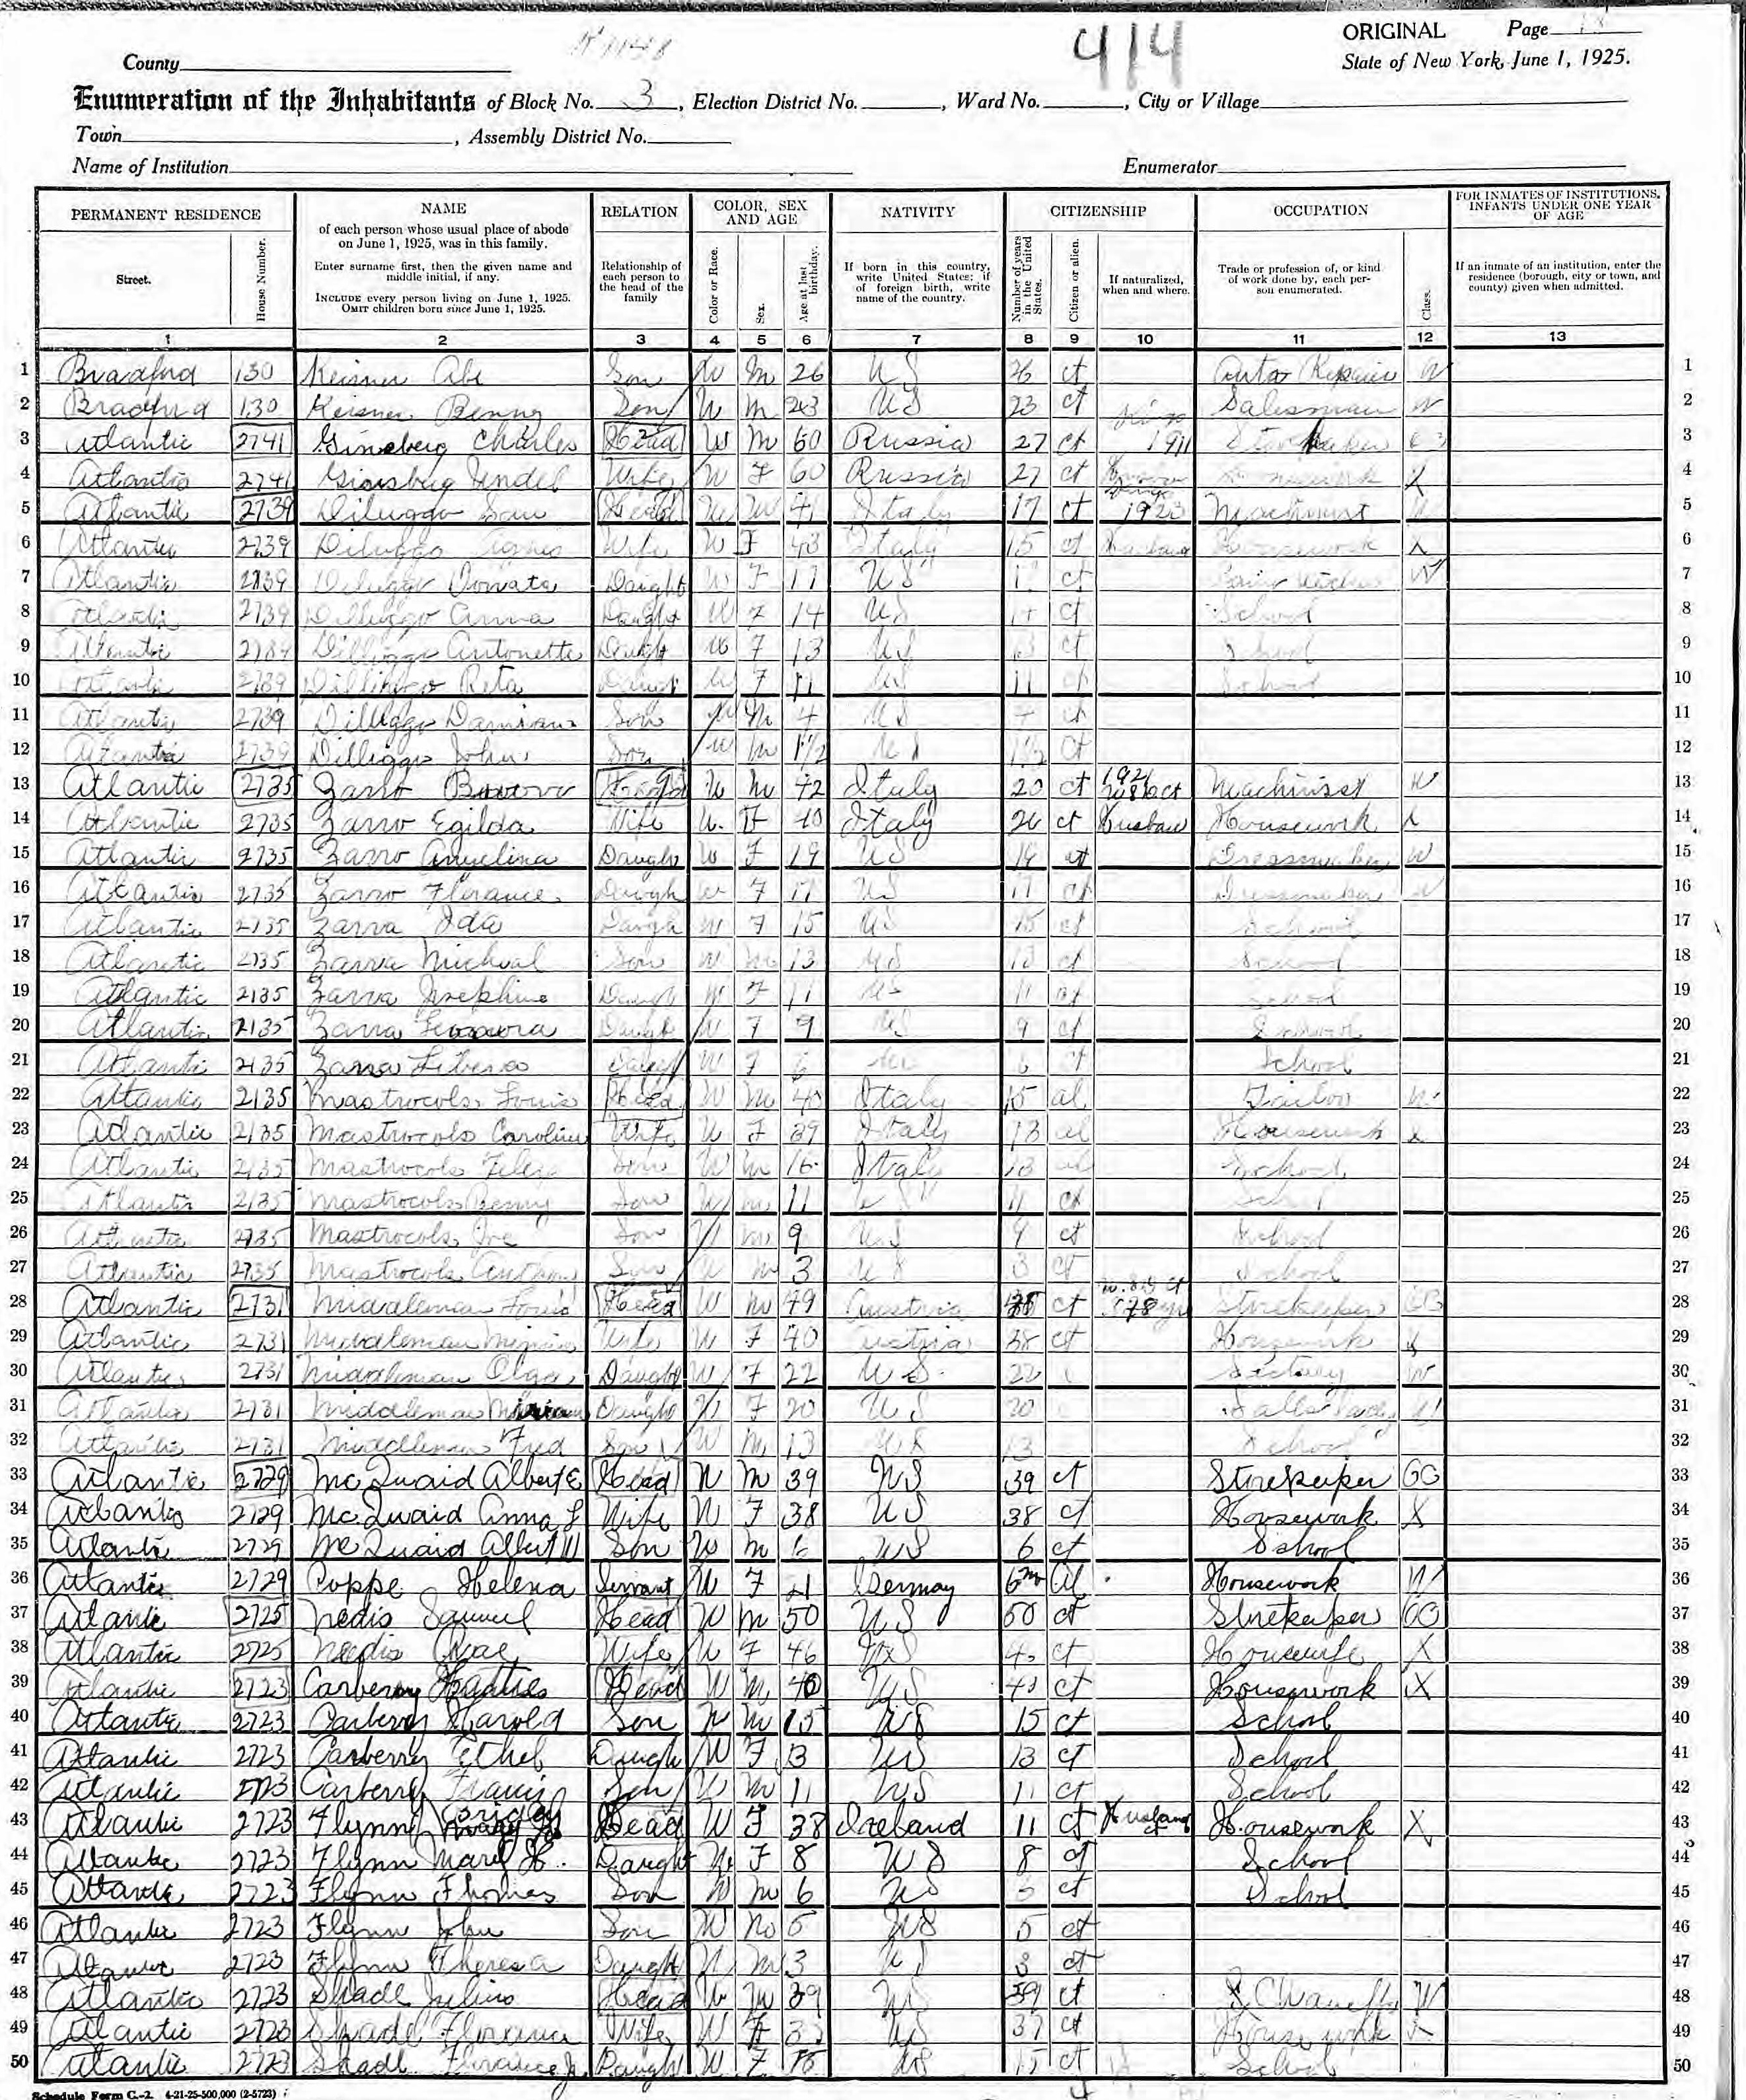 ORIGINAL Page
County
414
State of New York, June 1, 1925.
Enumeration of the Inhabitants of Block No. 3, Election District No. , Ward No. , City or Village
Town , Assembly District No.
Name of Institution Enumerator
PERMANENT RESIDENCE NAME RELATION COLOR, SEX AND AGE NATIVITY CITIZENSHIP OCCUPATION FOR INMATES OF INSTITUTIONS, INFANTS UNDER ONE YEAR OF AGE
Street. House Number. of each person whose usual place of abode on June 1, 1925, was in this family. Enter surname first, then the given name and middle initial, if any. INCLUDE every person living on June 1, 1925. OMIT children born since June 1, 1925. Relationship of each person to the head of the family Color or Race. Sex. Age at last birthday. If born in this country, write United States; if of foreign birth, write name of the country. Number of years in the United States. Citizen or alien. If naturalized, when and where. Trade or profession of, or kind of work done by, each person enumerated. Class. If an inmate of an institution, enter the residence (borough, city or town, and county) given when admitted.
1 2 3 4 5 6 7 8 9 10 11 12 13
1 Bradford 130 Keisner Abe Son W M 26 US 26 ct Auto Repair W 1
2 Bradford 130 Keisner Benny Son W M 23 US 23 ct Salesman W 2
3 Atlantic 2741 Ginsberg Charles Head W M 60 Russia 27 ct 1911 3
4 Atlantic 2741 Ginsberg Wife W F 60 Russia 27 ct X 4
5 Atlantic 2739 Head W M 41 Italy 17 ct 1923 Machinist W 5
6 Atlantic 2739 Wife W F 43 Italy 15 ct Husband Housework X 6
7 Atlantic 2739 Donata Daught W F 17 US 17 ct W 7
8 Atlantic 2739 Anna Daught W F 14 US 14 ct School 8
9 Atlantic 2739 Antonette Daught W F 13 US 13 ct School 9
10 Atlantic 2739 Rita Daught W F 11 US 11 ct School 10
11 Atlantic 2739 Dilliggo Son W M 4 US 4 ct 11
12 Atlantic 2739 Dilliggo John Son W M 1½ US 1½ ct 12
13 Atlantic 2735 Zarro Head W M 42 Italy 20 ct 1921 Machinist W 13
14 Atlantic 2735 Zarro Egilda Wife W F 40 Italy 20 ct Husban Housework X 14
15 Atlantic 2735 Zarro Angelina Daught W F 19 US 19 ct Dressmaker W 15
16 Atlantic 2735 Zarro Florance Daugh W F 17 US 17 ct Dressmaker W 16
17 Atlantic 2735 Zarra Ida Daugh W F 15 US 15 ct School 17
18 Atlantic 2735 Zarra Micheal Son W M 13 US 13 ct School 18
19 Atlantic 2135 Zarra Josephine Daugh W F 11 US 11 ct School 19
20 Atlantic 2135 Zarra Daught W F 9 US 9 ct School 20
21 Atlantic 2135 Zarra Libera Daugh W F 6 US 6 ct School 21
22 Atlantic 2135 Mastrocolo Louis Head W M 40 Italy 15 al Tailor W 22
23 Atlantic 2135 Mastrocolo Caroline Wife W F 39 Italy 13 al Housework X 23
24 Atlantic 2135 Mastrocolo Son W M 16 Italy 13 al School 24
25 Atlantic 2135 Mastrocolo Benny Son W M 11 US 11 ct School 25
26 Atlantic 2735 Mastrocolo Joe Son W M 9 US 9 ct School 26
27 Atlantic 2735 Mastrocolo Son W M 3 US 3 ct School 27
28 Atlantic 2731 Middleman Louis Head W M 49 Austria 38 ct Storekeeper 28
29 Atlantic 2731 Middleman Minnie Wife W F 40 Austria 38 ct Housework X 29
30 Atlantic 2731 Middleman Olga Daught W F 22 US 22 W 30
31 Atlantic 2731 Middleman Miriam Daught W F 20 US 20 Sales lady W 31
32 Atlantic 2731 Middleman Fred Son W M 13 US 13 School 32
33 Atlantic 2729 McQuaid Albert E Head W M 39 US 39 ct Storekeeper OO 33
34 Atlantic 2729 McQuaid Anna L Wife W F 38 US 38 ct Housework X 34
35 Atlantic 2729 McQuaid Albert W Son W M 6 US 6 ct School 35
36 Atlantic 2729 Poppe Helena Servant W F 21 Germay 6mo al Housework W 36
37 Atlantic 2725 Nedis Samuel Head W M 50 US 50 ct Storekeeper OO 37
38 Atlantic 2725 Needis Rae Wife W F 46 US ct Housewife X 38
39 Atlantic 2723 Carberry Head W M 40 US 40 ct Housework X 39
40 Atlantic 2723 Carberry Harold Son W M 15 US 15 ct School 40
41 Atlantic 2723 Carberry Ethel Daugh W F 13 US 13 ct School 41
42 Atlantic 2723 Carberry Francis Son W M 11 US 11 ct School 42
43 Atlantic 2723 Flynn Head W F 38 Ireland 11 ct Husband Housework X 43
44 Atlantic 2723 Flynn Mary H. Daught W F 8 US 8 ct School 44
45 Atlantic 2723 Flynn Thomas Son W M 6 US 6 ct School 45
46 Atlantic 2723 Flynn John Son W M 5 US 5 ct 46
47 Atlantic 2723 Flynn Theresa Daught W M 3 US 3 ct 47
48 Atlantic 2723 Shadl Julius Head W M 39 US 39 ct Chaueffr W 48
49 Atlantic 2723 Shadl Florence Wife W F 37 US 37 ct Housework X 49
50 Atlantic 2723 Shadl Florence Jr Daught W F 15 US 15 ct School 50
Schedule Form C.-2. 4-21-25-500,000 (2-5723)